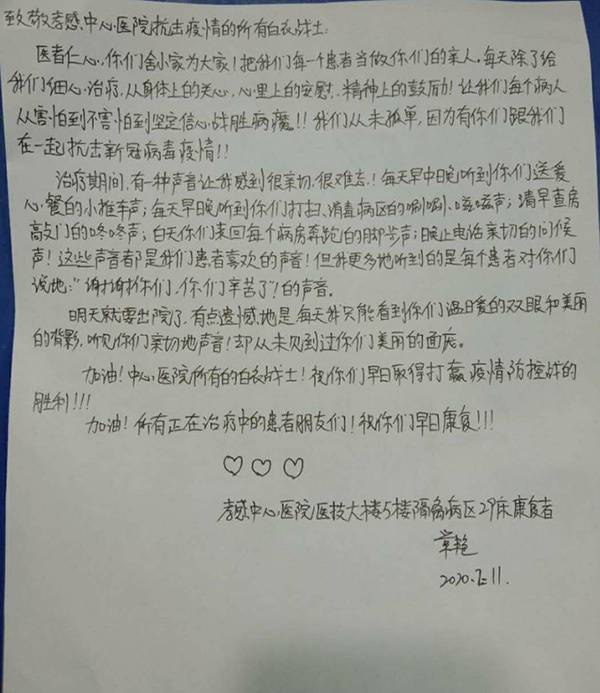 致敬孝感中心医院抗击疫情的所有白衣战士:
医者仁心,你们舍小家为大家!把我们每一个患者当做你们的亲人,每天除了给
我们细心治疗,从身体上的关心,心里上的安慰,精神上的鼓励!让我们每个病人
从害怕到不害怕到坚定信心战胜病魔!!我们从未孤单,因为有你们跟我们
在一起抗击新冠病毒疫情!!
治疗期间,有一种声音让我感到很亲切,很难忘!每天早中晚听到你们送爱
心餐的小推车声;每天早晚听到你们打扫、消毒病区的唰唰、嗞嗞声;清早查房
敲门的咚咚声;白天你们来回每个病房奔跑的脚步声;晚上电话亲切的问候
声!这些声音都是我们患者喜欢的声音!但我更多地听到的是每个患者对你们
说地:"谢谢你们,你们辛苦了"!的声音。
明天就要出院了,有点遗憾地是每天我只能看到你们温暖的双眼和美丽
的背影,听见你们亲切地声音!却从未见到过你们美丽的面庞。
加油!中心医院所有的白衣战士!祝你们早日取得打赢疫情防控战的
胜利!!!
加油!所有正在治疗中的患者朋友们!祝你们早日康复!!!
♡♡♡
孝感中心医院医技大楼5楼隔离病区29床康复者
章艳
2020.2.11.